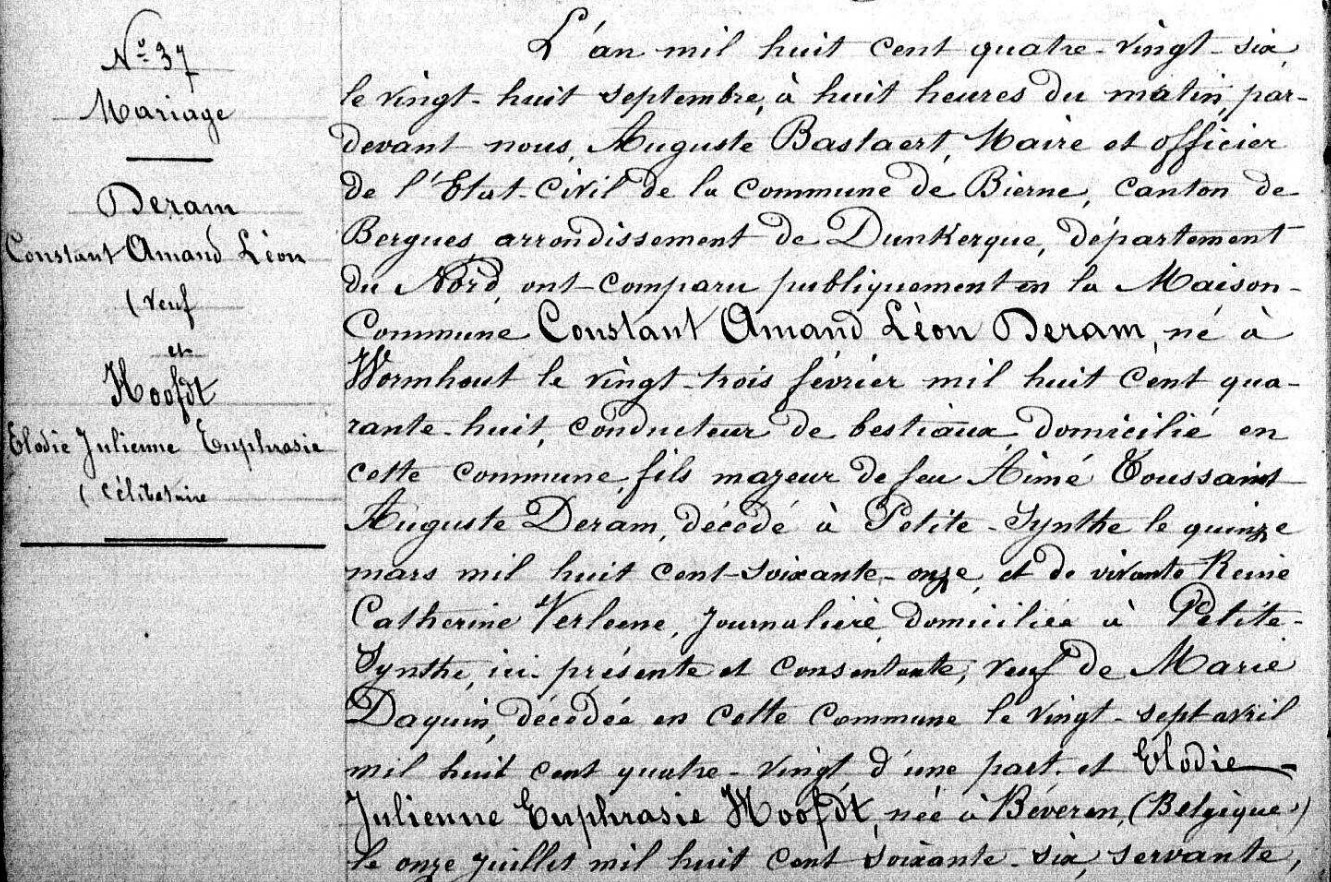 N° 37
Mariage
Deram
Constant Amand Léon
(veuf
et
Hoofdt
Elodie Julienne Euphrasie
(célibataire
L'an mil huit cent quatre-vingt-six,
le vingt-huit septembre, à huit heures du matin, par-
devant nous, Auguste Bastaert, Maire et officier
de l'Etat-Civil de la commune de Bierne, canton de
Bergues, arrondissement de Dunkerque, département
du Nord, ont comparu publiquement en la Maison-
Commune Constant Amand Léon Deram, né à
Wormhout le vingt-trois février mil huit cent qua-
rante-huit, conducteur de bestiaux, domicilié en
cette commune, fils majeur de feu Aimé Toussaint
Auguste Deram, décédé à Petite-Synthe le quinze
mars mil huit cent-soixante-onze, et de vivante Reine
Catherine Verleene, journalière, domiciliée à Petite-
Synthe, ici présente et consentante, veuf de Marie
Daquin, décédée en cette commune le vingt-sept avril
mil huit cent quatre-vingt d'une part. et Elodie
Julienne Euphrasie Hoofdt, née à Béveren, (Belgique)
le onze juillet mil huit cent soixante-six, servante,